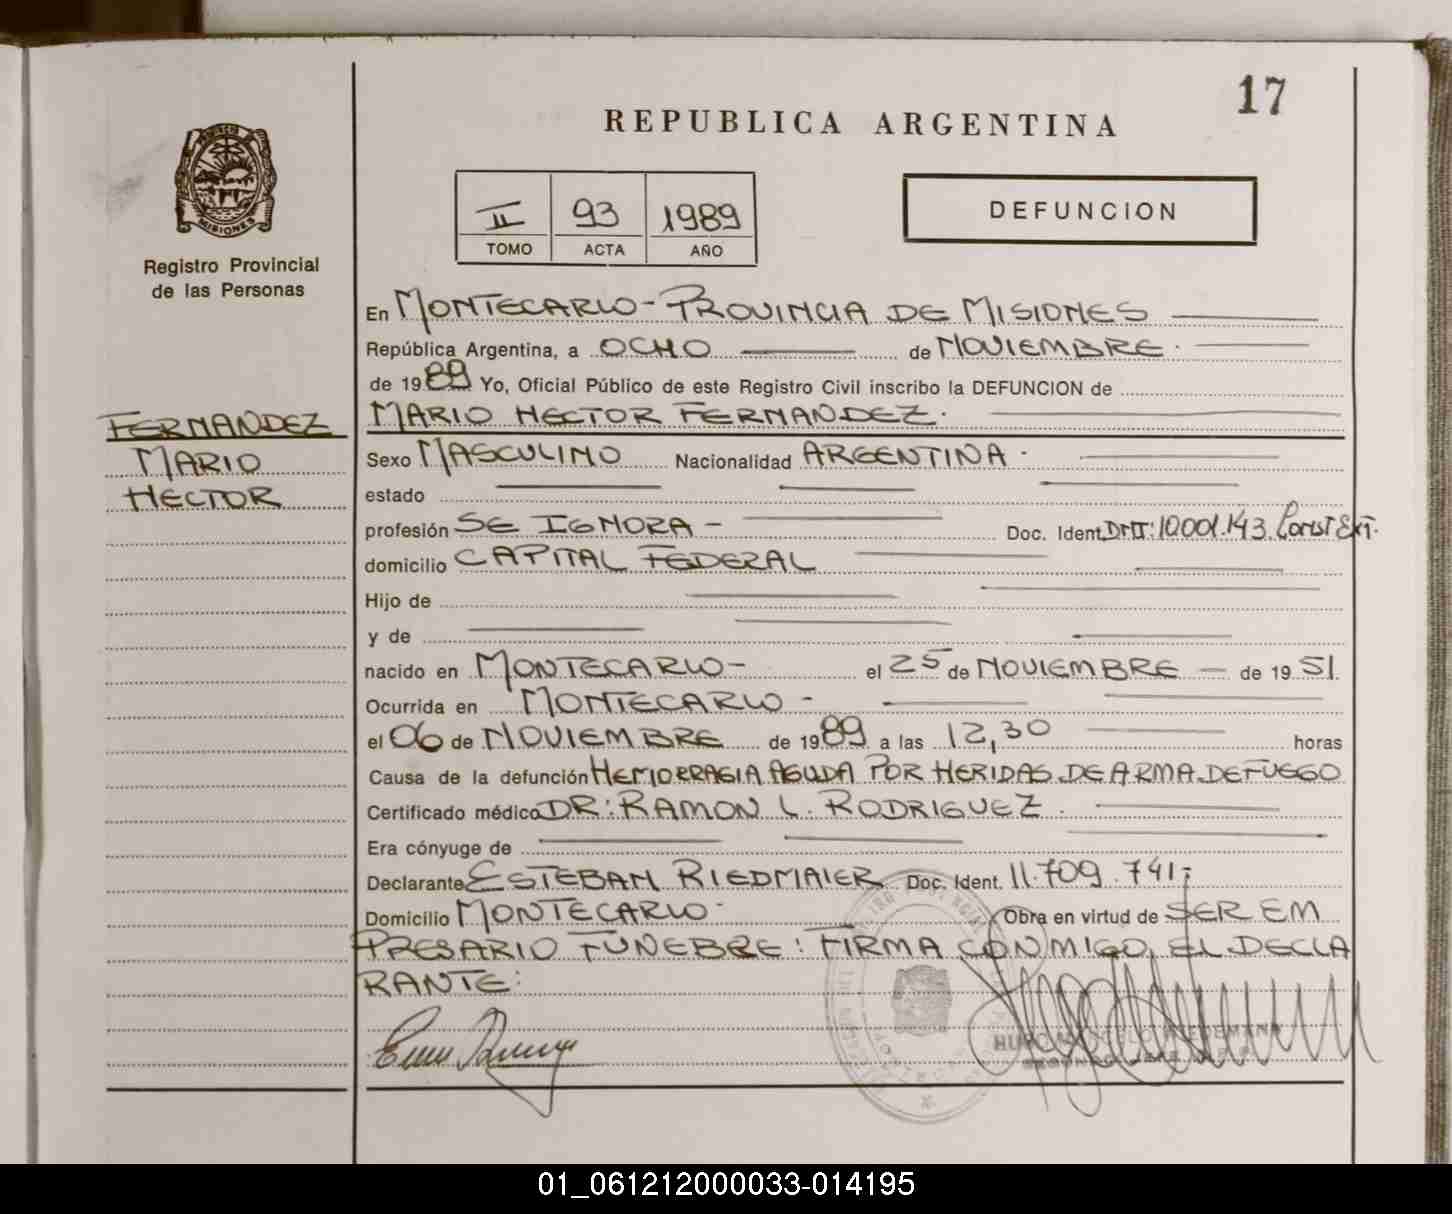 17
REPUBLICA ARGENTINA
II 93 1989
TOMO ACTA AÑO
DEFUNCION
MISIONES
Registro Provincial
de las Personas
FERNANDEZ
MARIO
HECTOR
En MONTECARLO - PROVINCIA DE MISIONES
República Argentina, a OCHO de NOVIEMBRE.
de 1989 Yo, Oficial Público de este Registro Civil inscribo la DEFUNCION de
MARIO HECTOR FERNANDEZ.
Sexo MASCULINO Nacionalidad ARGENTINA.
estado
profesión SE IGNORA - Doc. Ident. DNI: 10.001.143. Const Ext.
domicilio CAPITAL FEDERAL
Hijo de
y de
nacido en MONTECARLO - el 25 de NOVIEMBRE - de 19 51.
Ocurrida en MONTECARLO -
el 06 de NOVIEMBRE de 1989 a las 12,30 horas
Causa de la defunción HEMORRAGIA AGUDA POR HERIDAS DE ARMA DE FUEGO
Certificado médico DR: RAMON L. RODRIGUEZ.
Era cónyuge de
Declarante ESTEBAN RIEDMAIER Doc. Ident. 11.709.741;
Domicilio MONTECARLO. Obra en virtud de SER EM
PRESARIO FUNEBRE: FIRMA CONMIGO, EL DECLA
RANTE:
01_061212000033-014195